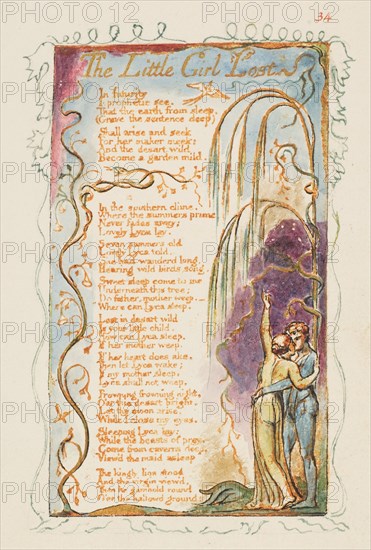 34
The Little Girl Lost
In futurity
I prophetic see,
That the earth from sleep,
(Grave the sentence deep)
Shall arise and seek
For her maker meek:
And the desart wild
Become a garden mild.
In the southern clime,
Where the summers prime
Never fades away;
Lovely Lyca lay.
Seven summers old
Lovely Lyca told,
She had wanderd long,
Hearing wild birds song.
Sweet sleep come to me
Underneath this tree;
Do father, mother weep.—
Where can Lyca sleep.
Lost in desart wild
Is your little child.
How can Lyca sleep,
If her mother weep.
If her heart does ake,
Then let Lyca wake;
If my mother sleep,
Lyca shall not weep.
Frowning frowning night,
O'er this desart bright,
Let thy moon arise,
While I close my eyes.
Sleeping Lyca lay;
While the beasts of prey,
Come from caverns deep,
View'd the maid asleep
The kingly lion stood
And the virgin view'd,
Then he gambold round
O'er the hallowd ground
PHOTO12